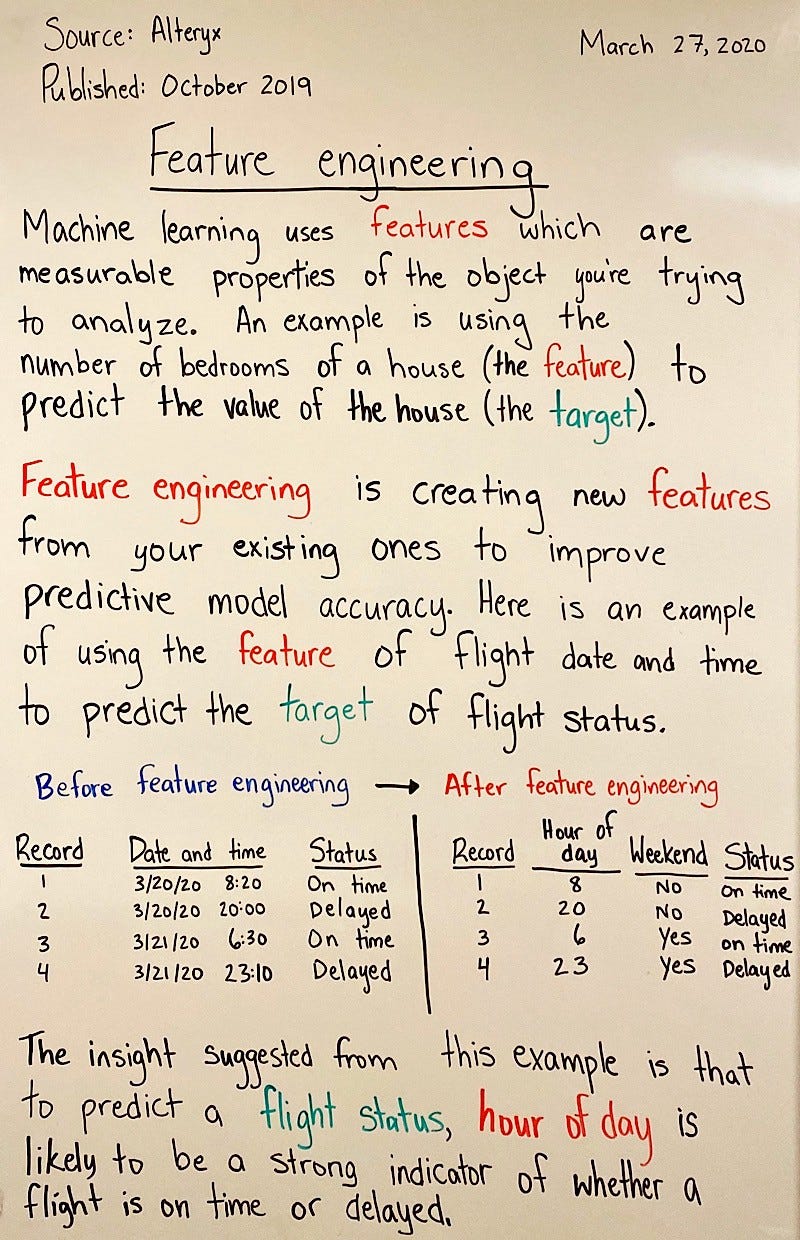 Source: Alteryx March 27, 2020
Published: October 2019
Feature engineering
Machine learning uses features which are
measurable properties of the object you're trying
to analyze. An example is using the
number of bedrooms of a house (the feature) to
predict the value of the house (the target).
Feature engineering is creating new features
from your existing ones to improve
predictive model accuracy. Here is an example
of using the feature of flight date and time
to predict the target of flight status.
Before feature engineering → After feature engineering
Record Date and time Status Record Hour of day Weekend Status
1 3/20/20 8:20 On time 1 8 No On time
2 3/20/20 20:00 Delayed 2 20 No Delayed
3 3/21/20 6:30 On time 3 6 Yes on time
4 3/21/20 23:10 Delayed 4 23 Yes Delayed
The insight suggested from this example is that
to predict a flight status, hour of day is
likely to be a strong indicator of whether a
flight is on time or delayed.